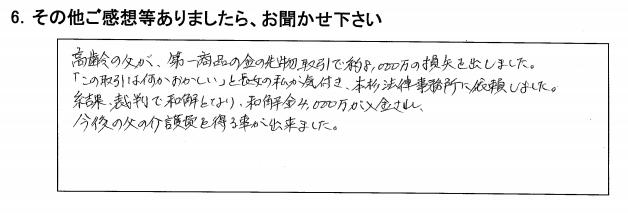 6. その他ご感想等ありましたら、お聞かせ下さい
高齢の父が、第一商品の金の先物取引で約8,000万の損失を出しました。
「この取引は何かおかしい」と長女の私が気付き、本杉法律事務所に依頼しました。
結果、裁判で和解となり、和解金4,000万が入金され、
今後の父の介護費を得る事が出来ました。